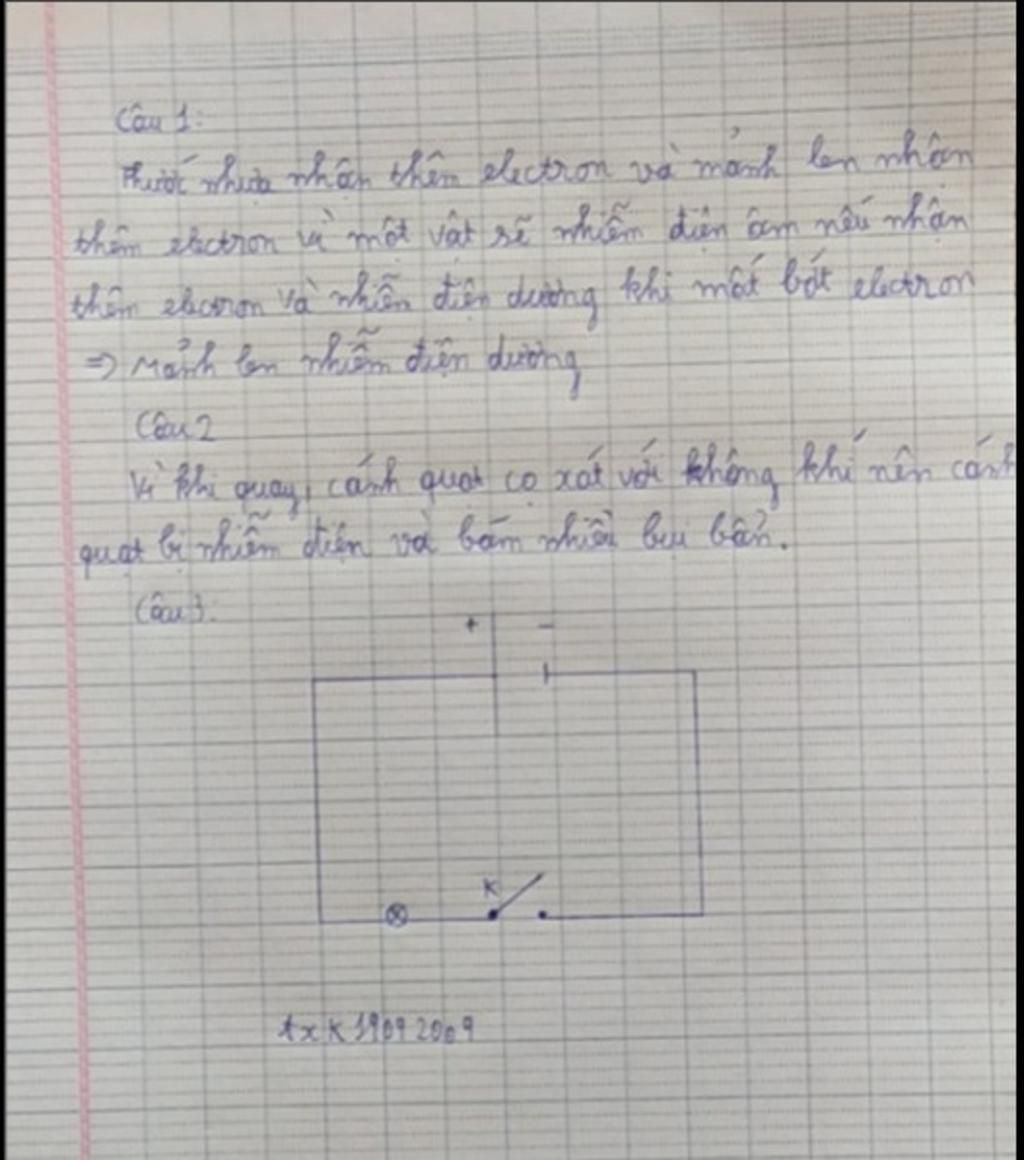 Câu 1:
Thước nhựa nhận thêm electron và mảnh len nhận
thêm electron vì một vật sẽ nhiễm điện âm nếu nhận
thêm electron và nhiễm điện dương khi mất bớt electron
=> Mảnh len nhiễm điện dương
Câu 2
Vì khi quay, cánh quạt cọ xát với không khí nên cánh
quạt bị nhiễm điện và bám nhiều bụi bẩn.
Câu 3:
+ -
K
txk 19092009